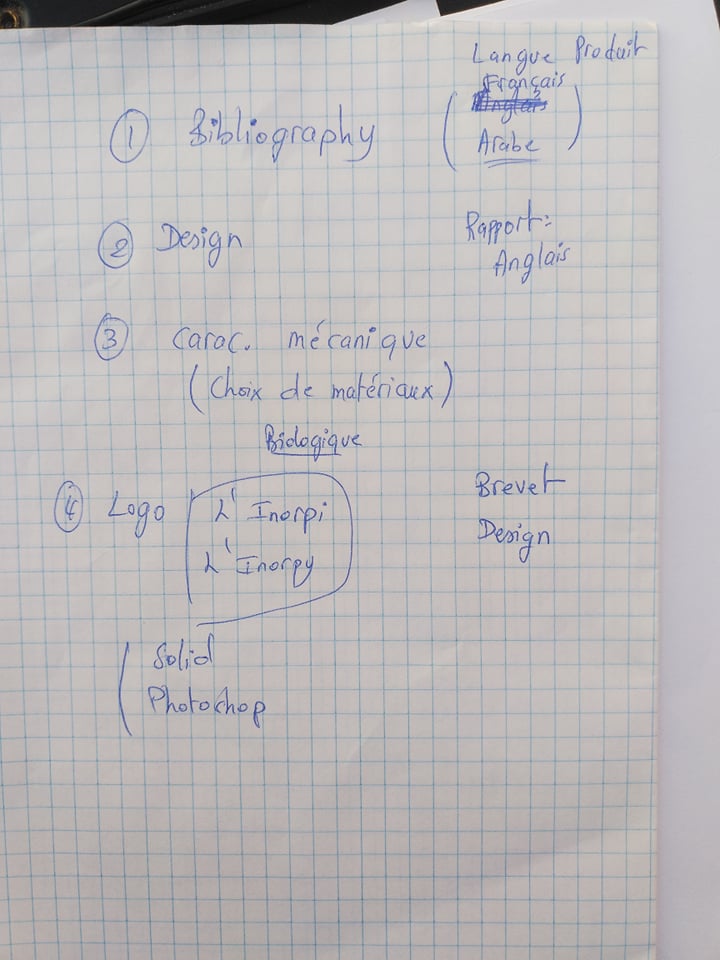 Langue Produit
Français
Anglais
Arabe
① Bibliography
② Design
Rapport:
Anglais
③ Carac. mécanique
(Choix de matériaux)
Biologique
④ Logo
L'Inorpi
L'Inorpy
Brevet
Design
Solid
Photochop